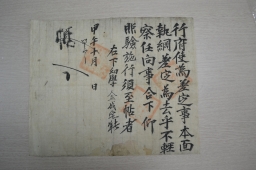 行府使為差定事本面
執綱差定為去乎不輕
察任向事合下仰
照驗施行須至帖者
右下
甲午十月 日